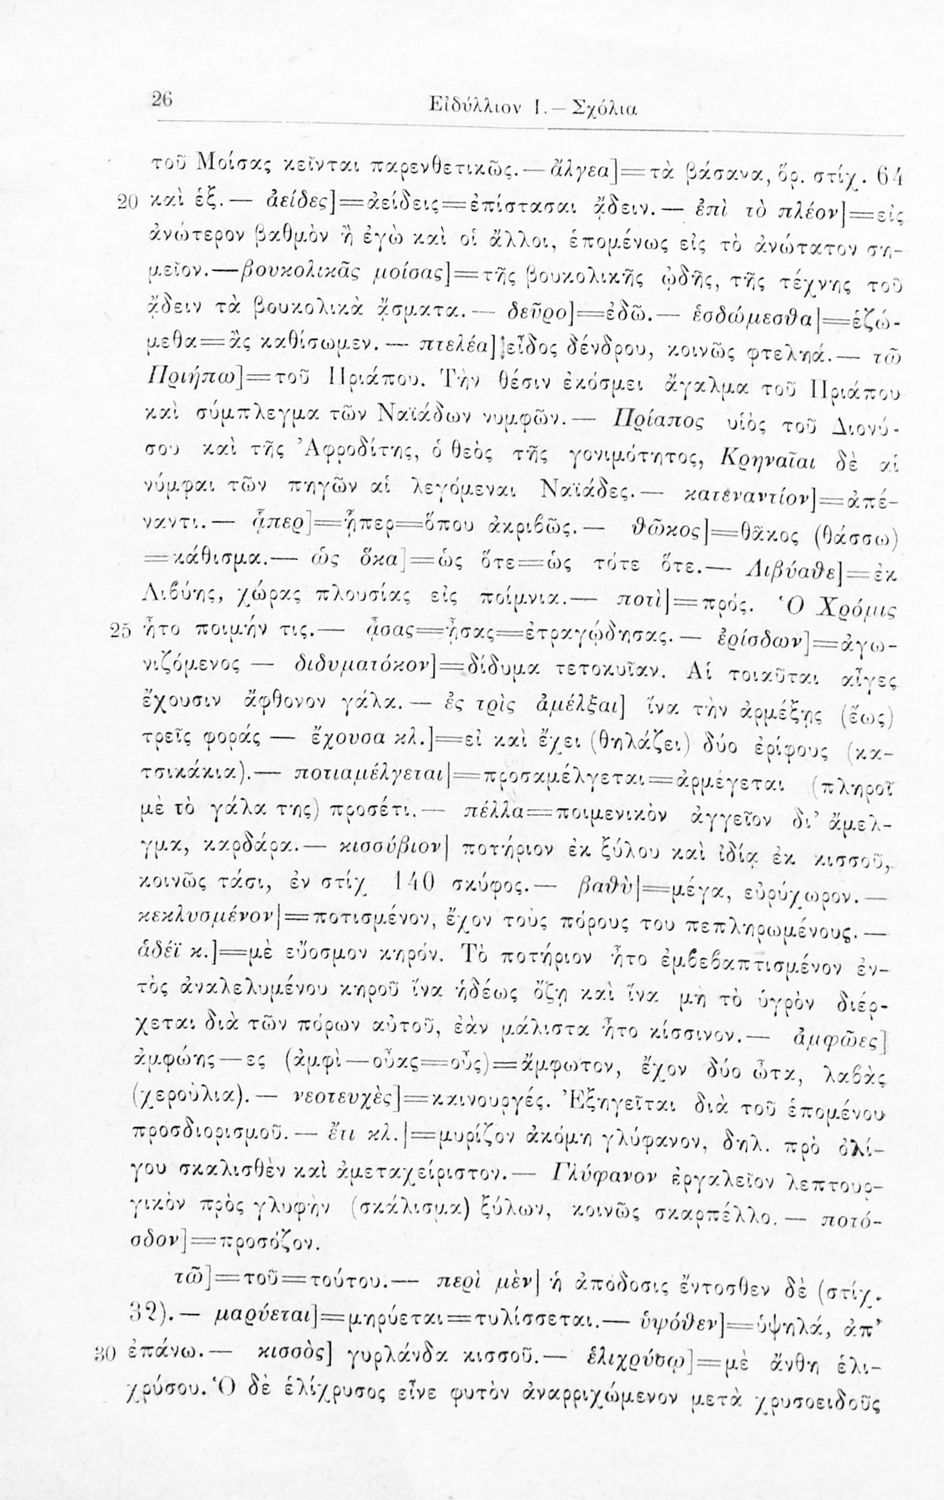 26 Εἰδύλλιον Ι. — Σχόλια
τοῦ Μοίσας κεῖνται παρενθετικῶς. — ἄλγεα]=τὰ βάσανα, ὅρ. στίχ. 64
20 καὶ ἑξ. — ἀείδες]=ἀείδεις=ἐπίστασαι ᾄδειν. — ἐπὶ τὸ πλέον]=εἰς
ἀνώτερον βαθμὸν ἢ ἐγὼ καὶ οἱ ἄλλοι, ἑπομένως εἰς τὸ ἀνώτατον ση-
μεῖον. — βουκολικᾶς μοίσας]=τῆς βουκολικῆς ᾠδῆς, τῆς τέχνης τοῦ
ᾄδειν τὰ βουκολικὰ ᾄσματα. — δεῦρο]=ἐδῶ. — ἑσδώμεσθα]=ἑζώ-
μεθα=ἂς καθίσωμεν. — πτελέα] εἶδος δένδρου, κοινῶς φτεληά. — τῶ
Πριήπω]=τοῦ Πριάπου. Τὴν θέσιν ἐκόσμει ἄγαλμα τοῦ Πριάπου
καὶ σύμπλεγμα τῶν Ναϊάδων νυμφῶν. — Πρίαπος υἱὸς τοῦ Διονύ-
σου καὶ τῆς Ἀφροδίτης, ὁ θεὸς τῆς γονιμότητος, Κρηναῖαι δὲ αἱ
νύμφαι τῶν πηγῶν αἱ λεγόμεναι Ναϊάδες. — κατεναντίον]=ἀπέ-
ναντι. — ᾇπερ]=ᾗπερ=ὅπου ἀκριβῶς. — θῶκος]=θᾶκος (θάσσω)
=κάθισμα. — ὡς ὅκα]=ὡς ὅτε=ὡς τότε ὅτε. — Λιβύαθε]=ἐκ
Λιβύης, χώρας πλουσίας εἰς ποίμνια. — ποτὶ]=πρός. Ὁ Χρόμις
25 ἦτο ποιμήν τις. — ᾆσας=ᾖσας=ἐτραγῴδησας. — ἐρίσδων]=ἀγω-
νιζόμενος — διδυματόκον]=δίδυμα τετοκυῖαν. Αἱ τοιαῦται αἶγες
ἔχουσιν ἄφθονον γάλα. — ἐς τρὶς ἀμέλξαι] ἵνα τὴν ἀρμέξῃς (ἕως)
τρεῖς φοράς — ἔχουσα κλ.]=εἰ καὶ ἔχει (θηλάζει) δύο ἐρίφους (κα-
τσικάκια). — ποτιαμέλγεται]=προσαμέλγεται=ἀρμέγεται (πληροῖ
μὲ τὸ γάλα της) προσέτι. — πέλλα=ποιμενικὸν ἀγγεῖον δι' ἄμελ-
γμα, καρδάρα. — κισσύβιον] ποτήριον ἐκ ξύλου καὶ ἰδίᾳ ἐκ κισσοῦ,
κοινῶς τάσι, ἐν στίχ 140 σκύφος. — βαθὺ]=μέγα, εὐρύχωρον. —
κεκλυσμένον]=ποτισμένον, ἔχον τοὺς πόρους του πεπληρωμένους. —
ἁδέϊ κ.]=μὲ εὔοσμον κηρόν. Τὸ ποτήριον ἦτο ἐμβεβαπτισμένον ἐν-
τὸς ἀναλελυμένου κηροῦ ἵνα ἡδέως ὄζῃ καὶ ἵνα μὴ τὸ ὑγρὸν διέρ-
χεται διὰ τῶν πόρων αὐτοῦ, ἐὰν μάλιστα ἦτο κίσσινον. — ἀμφῶες]
ἀμφώης — ες (ἀμφὶ — οὖας=οὖς)=ἄμφωτον, ἔχον δύο ὦτα, λαβὰς
(χερούλια). — νεοτευχὲς]=καινουργές. Ἐξηγεῖται διὰ τοῦ ἑπομένου
προσδιορισμοῦ. — ἔτι κλ.]=μυρίζον ἀκόμη γλύφανον, δηλ. πρὸ ὀλί-
γου σκαλισθὲν καὶ ἀμεταχείριστον. — Γλύφανον ἐργαλεῖον λεπτουρ-
γικὸν πρὸς γλυφὴν (σκάλισμα) ξύλων, κοινῶς σκαρπέλλο. — ποτό-
σδον]=προσόζον.
τῶ]=τοῦ=τούτου. — περὶ μὲν] ἡ ἀπόδοσις ἔντοσθεν δὲ (στίχ.
32). — μαρύεται]=μηρύεται=τυλίσσεται. — ὑψόθεν]=ὑψηλά, ἀπ'
30 ἐπάνω. — κισσὸς] γυρλάνδα κισσοῦ. — ἑλιχρύσῳ]=μὲ ἄνθη ἑλι-
χρύσου. Ὁ δὲ ἑλίχρυσος εἶνε φυτὸν ἀναρριχώμενον μετὰ χρυσοειδοῦς